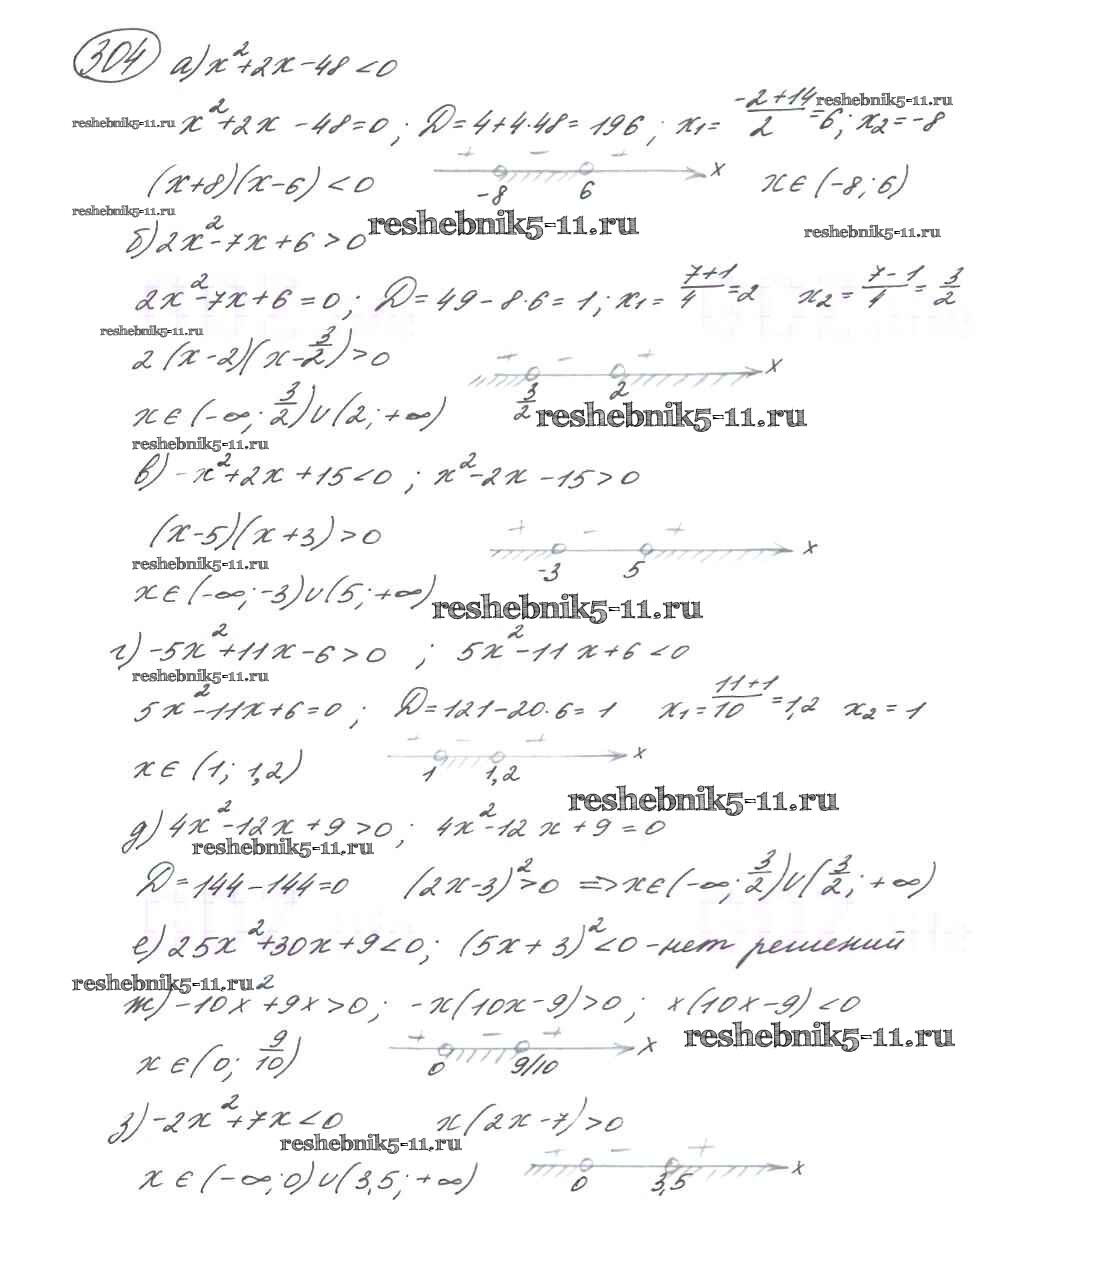 304 а) x²+2x-48<0
reshebnik5-11.ru x²+2x-48=0; D=4+4·48=196; x₁=(-2+14)/2=6; x₂=-8 reshebnik5-11.ru
(x+8)(x-6)<0 + - + -8 6 x x∈(-8;6)
reshebnik5-11.ru reshebnik5-11.ru reshebnik5-11.ru
б) 2x²-7x+6>0
2x²-7x+6=0; D=49-8·6=1; x₁=(7+1)/4=2 x₂=(7-1)/4=3/2
reshebnik5-11.ru
2(x-2)(x-3/2)>0 + - + 3/2 2 x
x∈(-∞;3/2)∪(2;+∞) reshebnik5-11.ru
reshebnik5-11.ru
в) -x²+2x+15<0; x²-2x-15>0
(x-5)(x+3)>0 + - + -3 5 x
reshebnik5-11.ru
x∈(-∞;-3)∪(5;+∞) reshebnik5-11.ru
г) -5x²+11x-6>0; 5x²-11x+6<0
reshebnik5-11.ru
5x²-11x+6=0; D=121-20·6=1 x₁=(11+1)/10=1,2 x₂=1
x∈(1;1,2) + - + 1 1,2 x
reshebnik5-11.ru
д) 4x²-12x+9>0; 4x²-12x+9=0
reshebnik5-11.ru
D=144-144=0 (2x-3)²>0 => x∈(-∞;3/2)∪(3/2;+∞)
е) 25x²+30x+9<0; (5x+3)²<0 - нет решений
reshebnik5-11.ru
ж) -10x²+9x>0; -x(10x-9)>0; x(10x-9)<0
reshebnik5-11.ru
x∈(0;9/10) + - + 0 9/10 x
з) -2x²+7x<0 x(2x-7)>0
reshebnik5-11.ru
x∈(-∞;0)∪(3,5;+∞) + - + 0 3,5 x